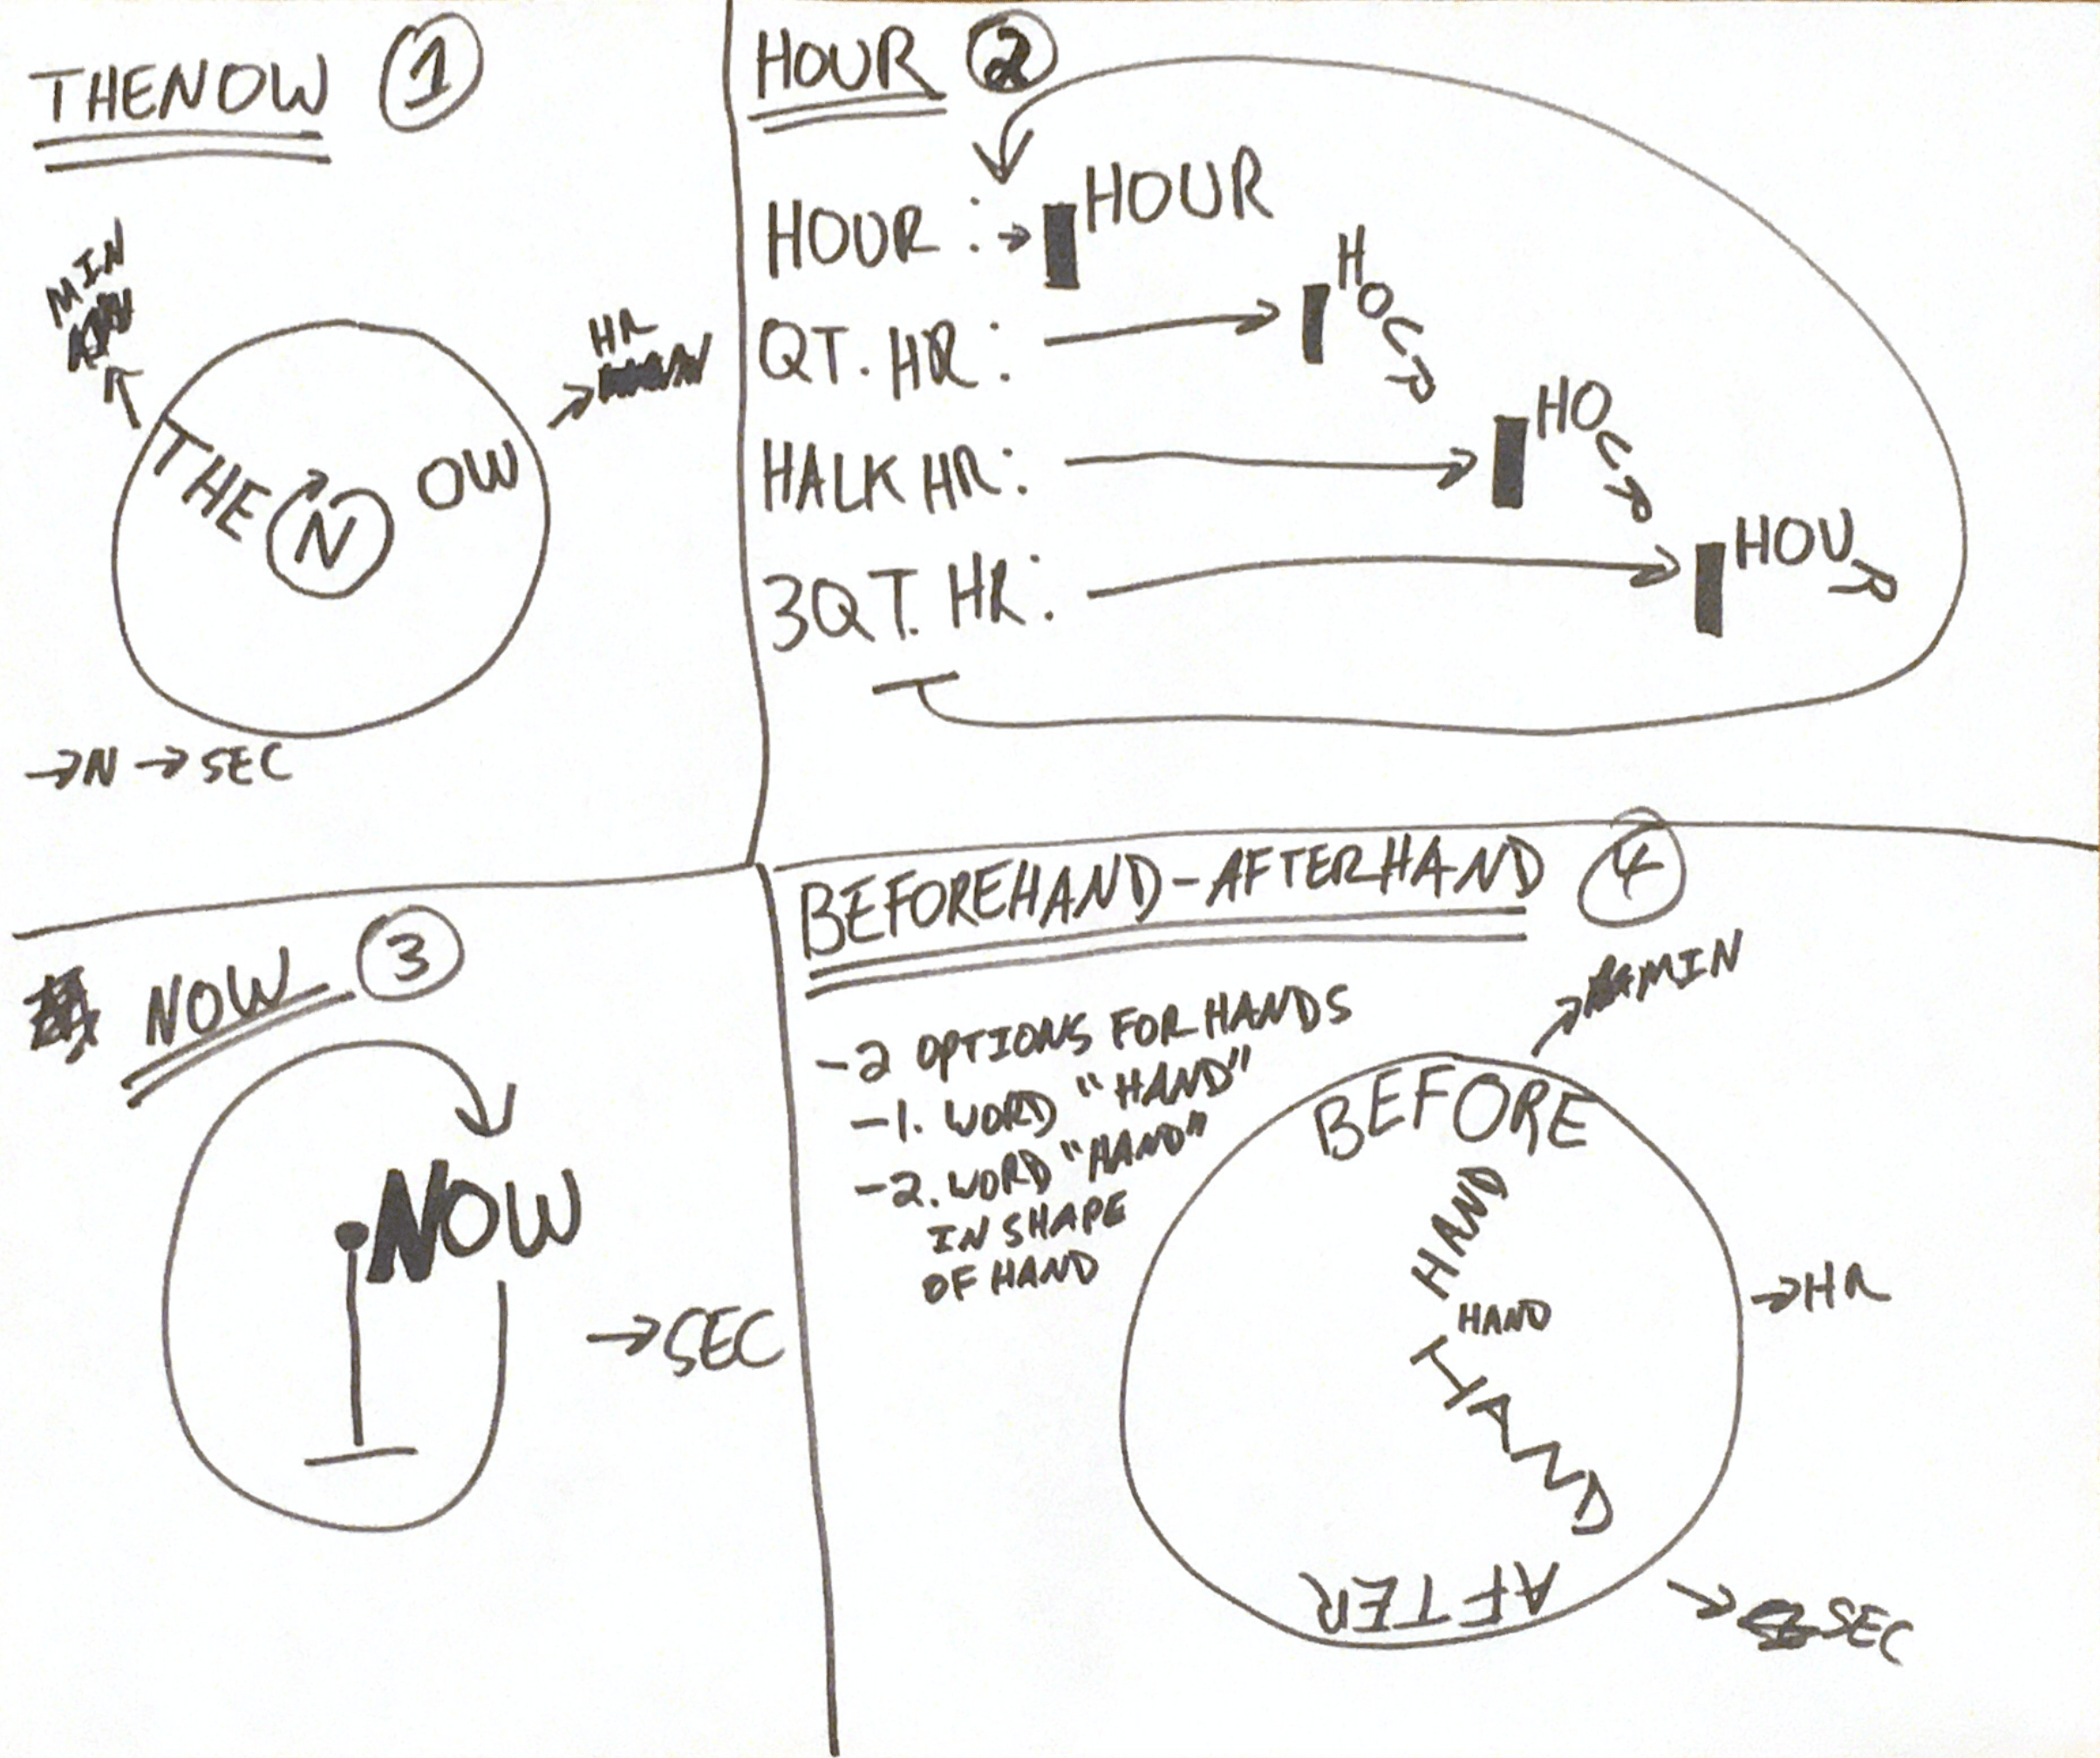 THENOW 1
MIN
HR
THE N OW
→N → SEC
HOUR 2
HOUR : → HOUR
QT. HR : HOUR
HALK HR: HOUR
3QT. HR: HOUR
NOW 3
NOW
→SEC
BEFOREHAND-AFTERHAND 4
-2 OPTIONS FOR HANDS
-1. WORD "HAND"
-2. WORD "HAND"
IN SHAPE
OF HAND
→MIN
BEFORE
HAND
HAND
→HR
HAND
AFTER
→SEC